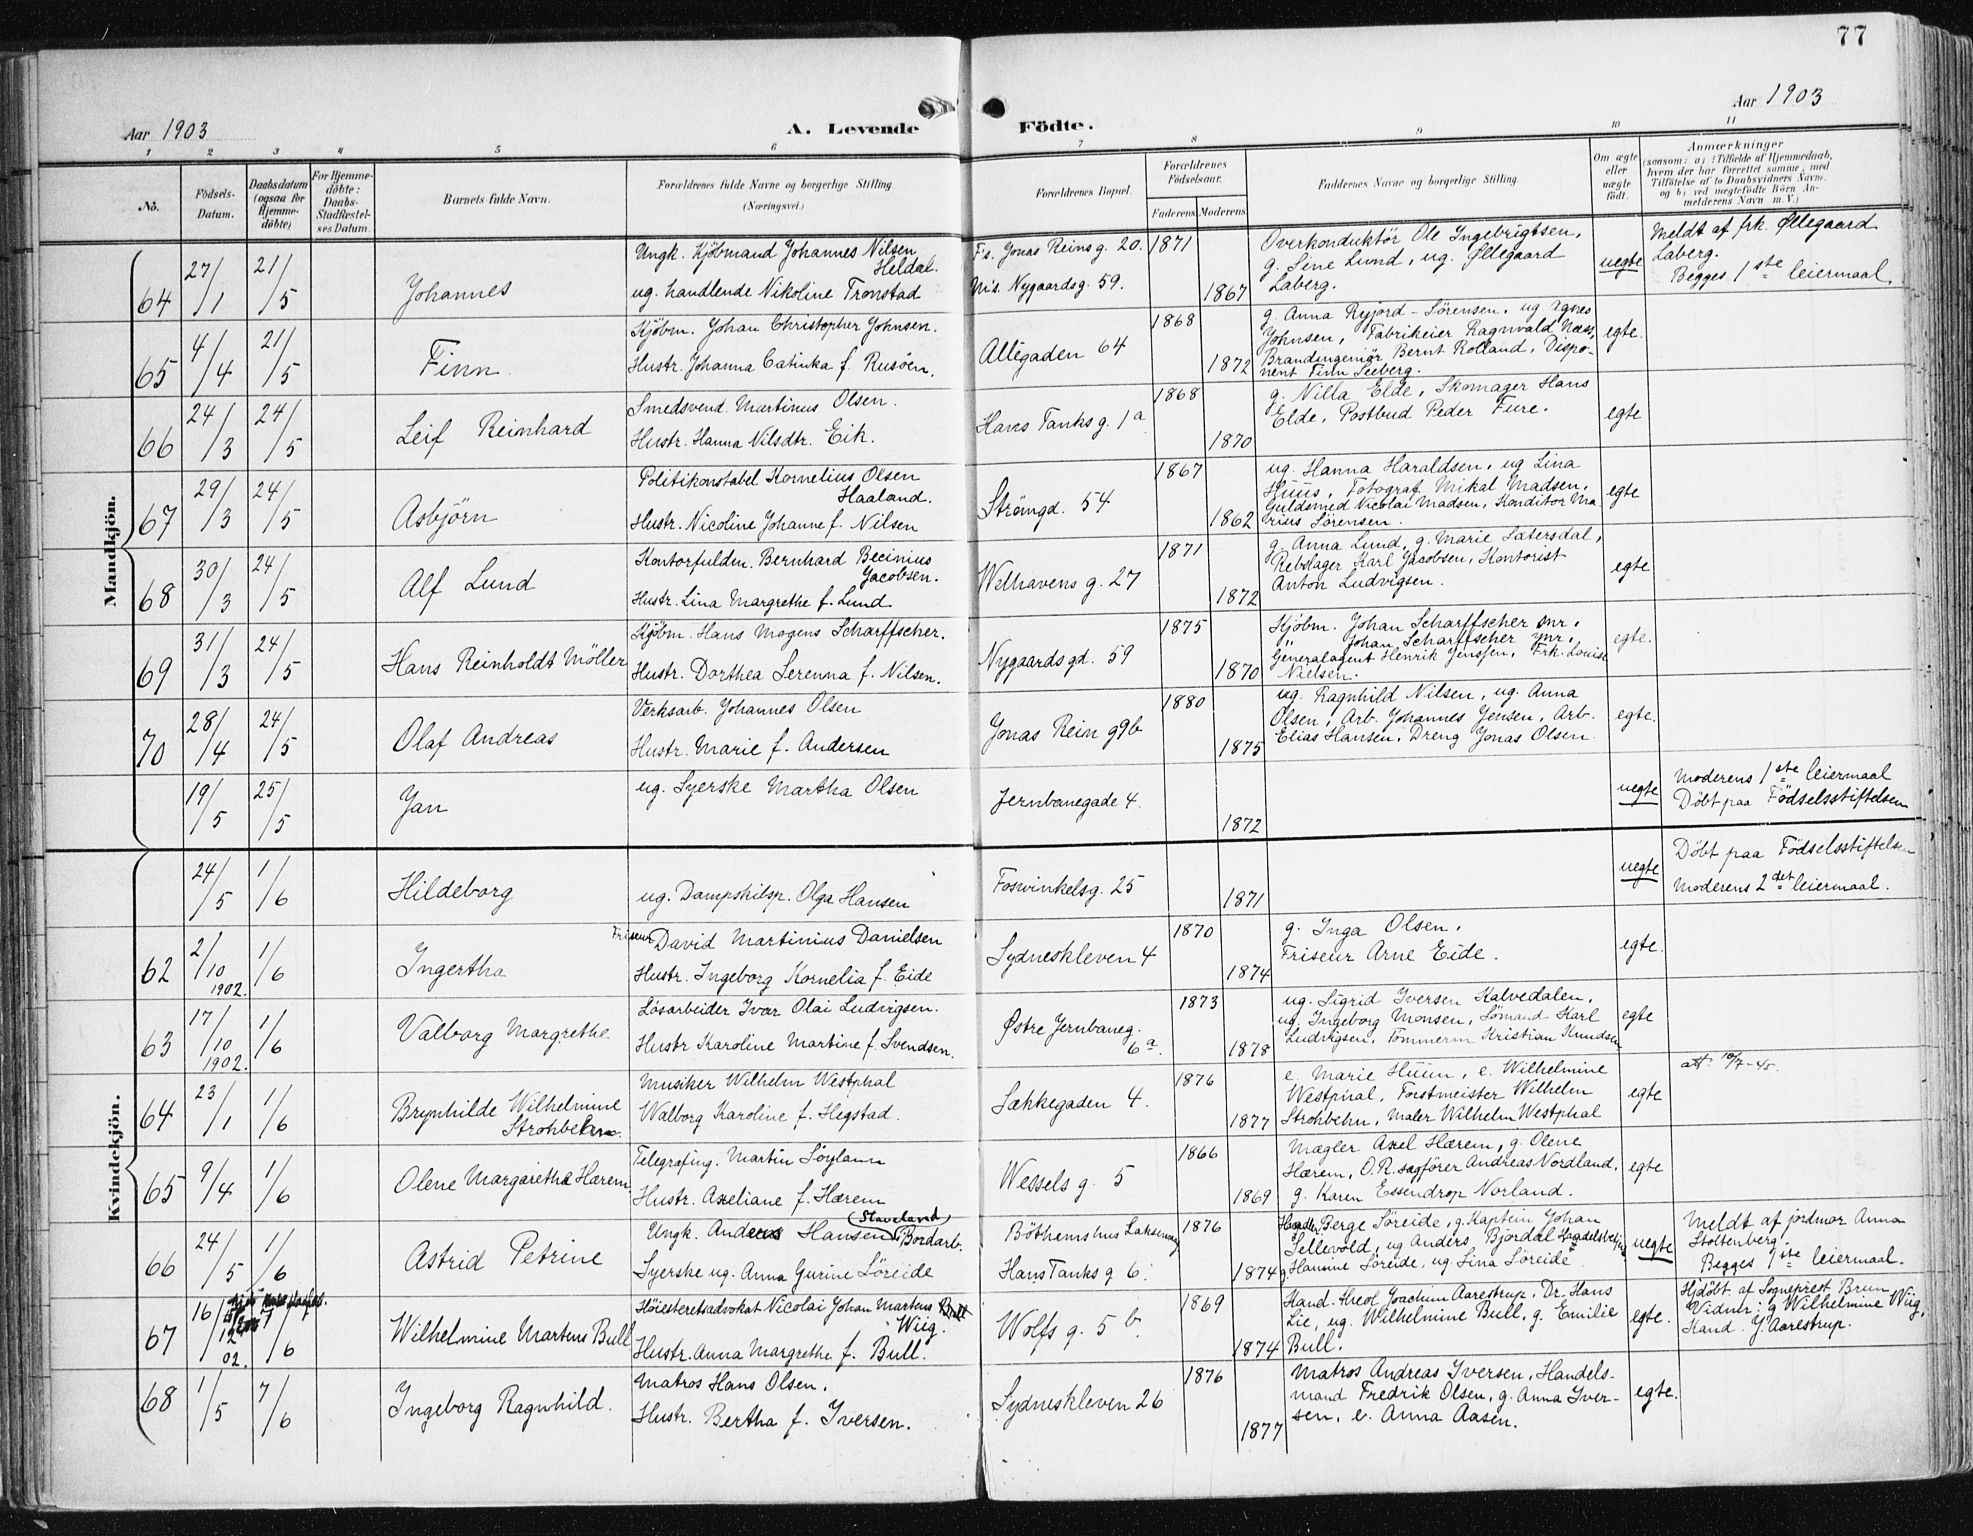 77
Aar 1903
A. Levende Födte.
Aar 1903
1 2 3 4 5 6 7 8 9 10 11
No.
Födsels-Datum.
Daabsdatum (ogsaa for Hjemmedöbte)
For Hjemmedöbte: Daabs-Stadfæstelses Datum.
Barnets fulde Navn.
Forældrenes fulde Navne og borgerlige Stilling
(Næringsvei.)
Forældrenes Bopæl.
Forældrenes Födselsaar.
Faderens. Moderens.
Faddernes Navne og borgerlige Stilling.
Om ægte eller uægte födt.
Anmærkninger
(saasom: a) i Tilfælde af Hjemmedaab,
hvem der har forrettet samme, med
Tilföielse af to Daabsvidners Navne,
og b) ved uægtefödte Börn An-
melderens Navn m. V.)
Mandkjön.
64 27/1 21/5 Johannes
Ungk. Kjöbmand Johannes Nilsen Heldal.
ug. handlende Nikoline Tronstad
F's. Jonas Reinsg. 20.
M's. Nygaardsg. 59.
1871 1867
Overkonduktör Ole Ingebrigtsen,
g. Sine Lund, ug. Øllegaard
Laberg.
uegte
Meldt af frk. Øllegaard
Laberg.
Begges 1ste leiermaal.
65 4/4 21/5 Finn.
Kjöbm. Johan Christopher Johnsen.
Hustr. Johanna Catinka f. Rusöen.
Allégaden 64
1868 1872
g. Anna Ryjord-Sörensen, ug Agnes
Johnsen, Fabrikeier Ragnvald Næss,
Brandingeniör Bernt Rolland, Dispo-
nent Finn Seeberg.
egte.
66 24/3 24/5 Leif Reinhard
Smedsvend. Martinus Olsen.
Hustr. Hanna Nilsdtr. Eik.
Hans Tanks g. 1a
1868 1870
g. Nilla Elde, Skomager Hans
Elde, Postbud Peder Fure.
egte
67 29/3 24/5 Asbjörn
Politikonstabel Kornelius Olsen
Haaland.
Hustr. Nicoline Johanne f. Nilsen
Strömgd. 54
1867 1862
ug. Hanna Haraldsen, ug Lina
Huus, Fotograf Mikal Madsen,
Guldsmed Nicolai Madsen, Konditor Ma-
rius Sörensen.
egte
68 30/3 24/5 Alf Lund
Kontorfuldm. Bernhard Becinius
Jacobsen.
Hustr. Lina Margrethe f. Lund
Welhavens g. 27
1871 1872
g. Anna Lund, g. Marie Sætersdal,
Rebslager Karl Jacobsen, Kontorist
Anton Ludvigsen.
egte
69 31/3 24/5 Hans Reinholdt Möller
Kjöbm. Hans Mogens Scharffscher.
Hustr. Dorthea Serenna f. Nilsen.
Nygaardsgd. 59
1875 1870
Kjöbm. Johan Scharffscher snr,
" Johan Scharffscher jnr,
Generalagent Henrik Jenssen, Frk. Louise
Nielsen.
egte.
70 28/4 24/5 Olaf Andreas
Verksarb. Johannes Olsen
Hustr. Marie f. Andersen
Jonas Rein g 9b
1880 1875
ug. Ragnhild Nilsen, ug. Anna
Olsen, Arb. Johannes Jensen, Arb.
Elias Hansen, Dreng Jonas Olsen.
egte.
19/5 25/5 Jan
ug. Syerske Martha Olsen
Jernbanegade 4.
1872
uegte
Moderens 1ste leiermaal
Döbt paa Födselsstiftelsen
Kvindekjön.
24/5 1/6 Hildeborg
ug. Dampskibsp. Olga Hansen
Foswinkelsg. 25
1871
uegte
Döbt paa Födselsstiftelsen
Moderens 2det leiermaal.
62 2/10 1902. 1/6 Ingertha
Friseur David Martinius Danielsen
Hustr. Ingeborg Kornelia f. Eide
Sydneskleven 4
1870 1874
g. Inga Olsen,
Friseur Arne Eide.
egte.
63 17/10 1902. 1/6 Valborg Margrethe.
Lösarbeider Ivar Olai Ludvigsen.
Hustr Karoline Martine f. Svendsen.
Østre Jernbaneg. 6a.
1873 1878
ug. Sigrid Iversen Kalvedalen,
ug. Ingeborg Monsen, Sömand Karl
Ludvigsen, Tömmerm Kristian Knudsen
egte
64 23/1 1/6 Brynhilde Wilhelmine
Strohbehn.
Musiker Wilhelm Westphal
Walborg Karoline f. Hegstad.
Sækkegaden 4.
1876 1877
e. Marie Huun, e. Wilhelmine
Westphal, Forstmeister Wilhelm
Strohbehn, Maler Wilhelm Westphal
egte
att. 10/7-45.
65 9/4 1/6 Olene Margaretha Hærem
Telegrafing. Martin Söyland
Hustr. Axeliane f. Hærem
Wessels g. 5
1866 1869
Mægler Axel Hærem, g. Olene
Hærem, O.R. sagförer Andreas Nordland,
g. Karen Essendrop Norland.
egte
66 24/5 1/6 Astrid Petrine
Ungk. Anders Hansen (Staveland) Bordarb.
Syerske ug. Anna Gurine Söreide
Böthemshus Laksevaag
Hans Tanks g 6.
1876 1874
Handlm. Berge Söreide, g. Kaptein Johan
Sellevold, ug Anders Bjordal Handelsbetj.
g. Hansine Söreide, ug. Lina Söreide
uegte
Meldt af jordmor Anna
Stoltenberg.
Begges 1ste leiermaal.
67 16/12 02. 7/6 Wilhelmine Martens Bull
Höiesteretsadvokat Nicolai Johan Martens Bull
Wiig.
Hustr. Anna Margrethe f. Bull.
Wolfs g. 5 b.
1869 1874
Kand. theol Joachum Aarestrup, Dr. Hans
Lie, ug. Wilhelmine Bull, g. Emilie
Bull.
egte.
Hjdöbt af Sogneprest Brun
Vidner: g Wilhelmine Wiig,
Kand. J. Aarestrup.
68 1/5 7/6 Ingeborg Ragnhild.
Matros Hans Olsen,
Hustr. Bertha f. Iversen.
Sydneskleven 26
1876 1877
Matros Andreas Iversen, Handels-
mand Fredrik Olsen, g. Anna Iver-
sen, e. Anna Aasen.
egte.